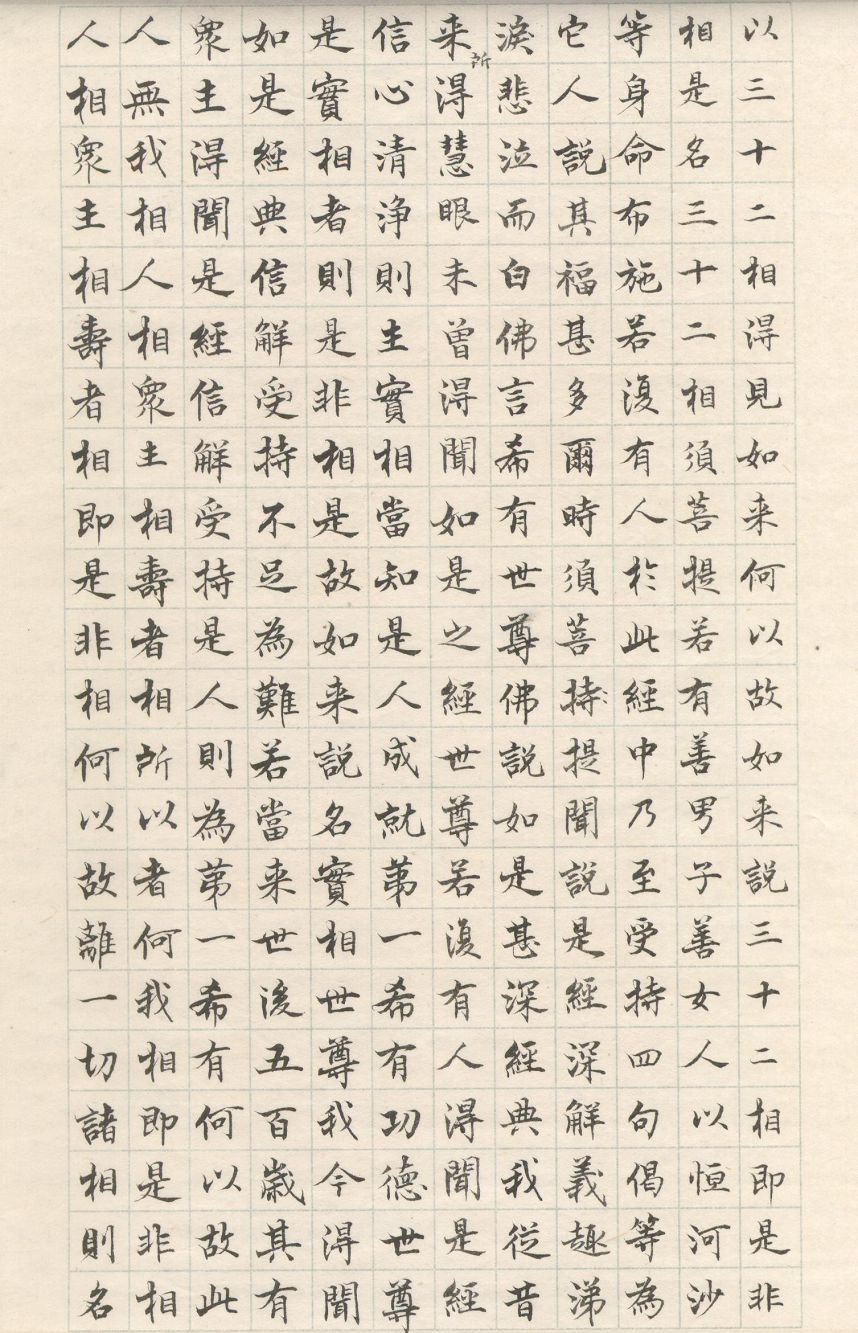 以三十二相得見如来何以故如来説三十二相即是非
相是名三十二相須菩提若有善男子善女人以恒河沙
等身命布施若復有人於此經中乃至受持四句偈等為
它人説其福甚多爾時須菩持提聞説是經深解義趣涕
淚悲泣而白佛言希有世尊佛説如是甚深經典我從昔
来所得慧眼未曾得聞如是之經世尊若復有人得聞是經
信心清淨則生實相當知是人成就第一希有功德世尊
是實相者則是非相是故如来説名實相世尊我今得聞
如是經典信解受持不足為難若當来世後五百歲其有
衆生得聞是經信解受持是人則為第一希有何以故此
人無我相人相衆生相壽者相所以者何我相即是非相
人相衆生相壽者相即是非相何以故離一切諸相則名